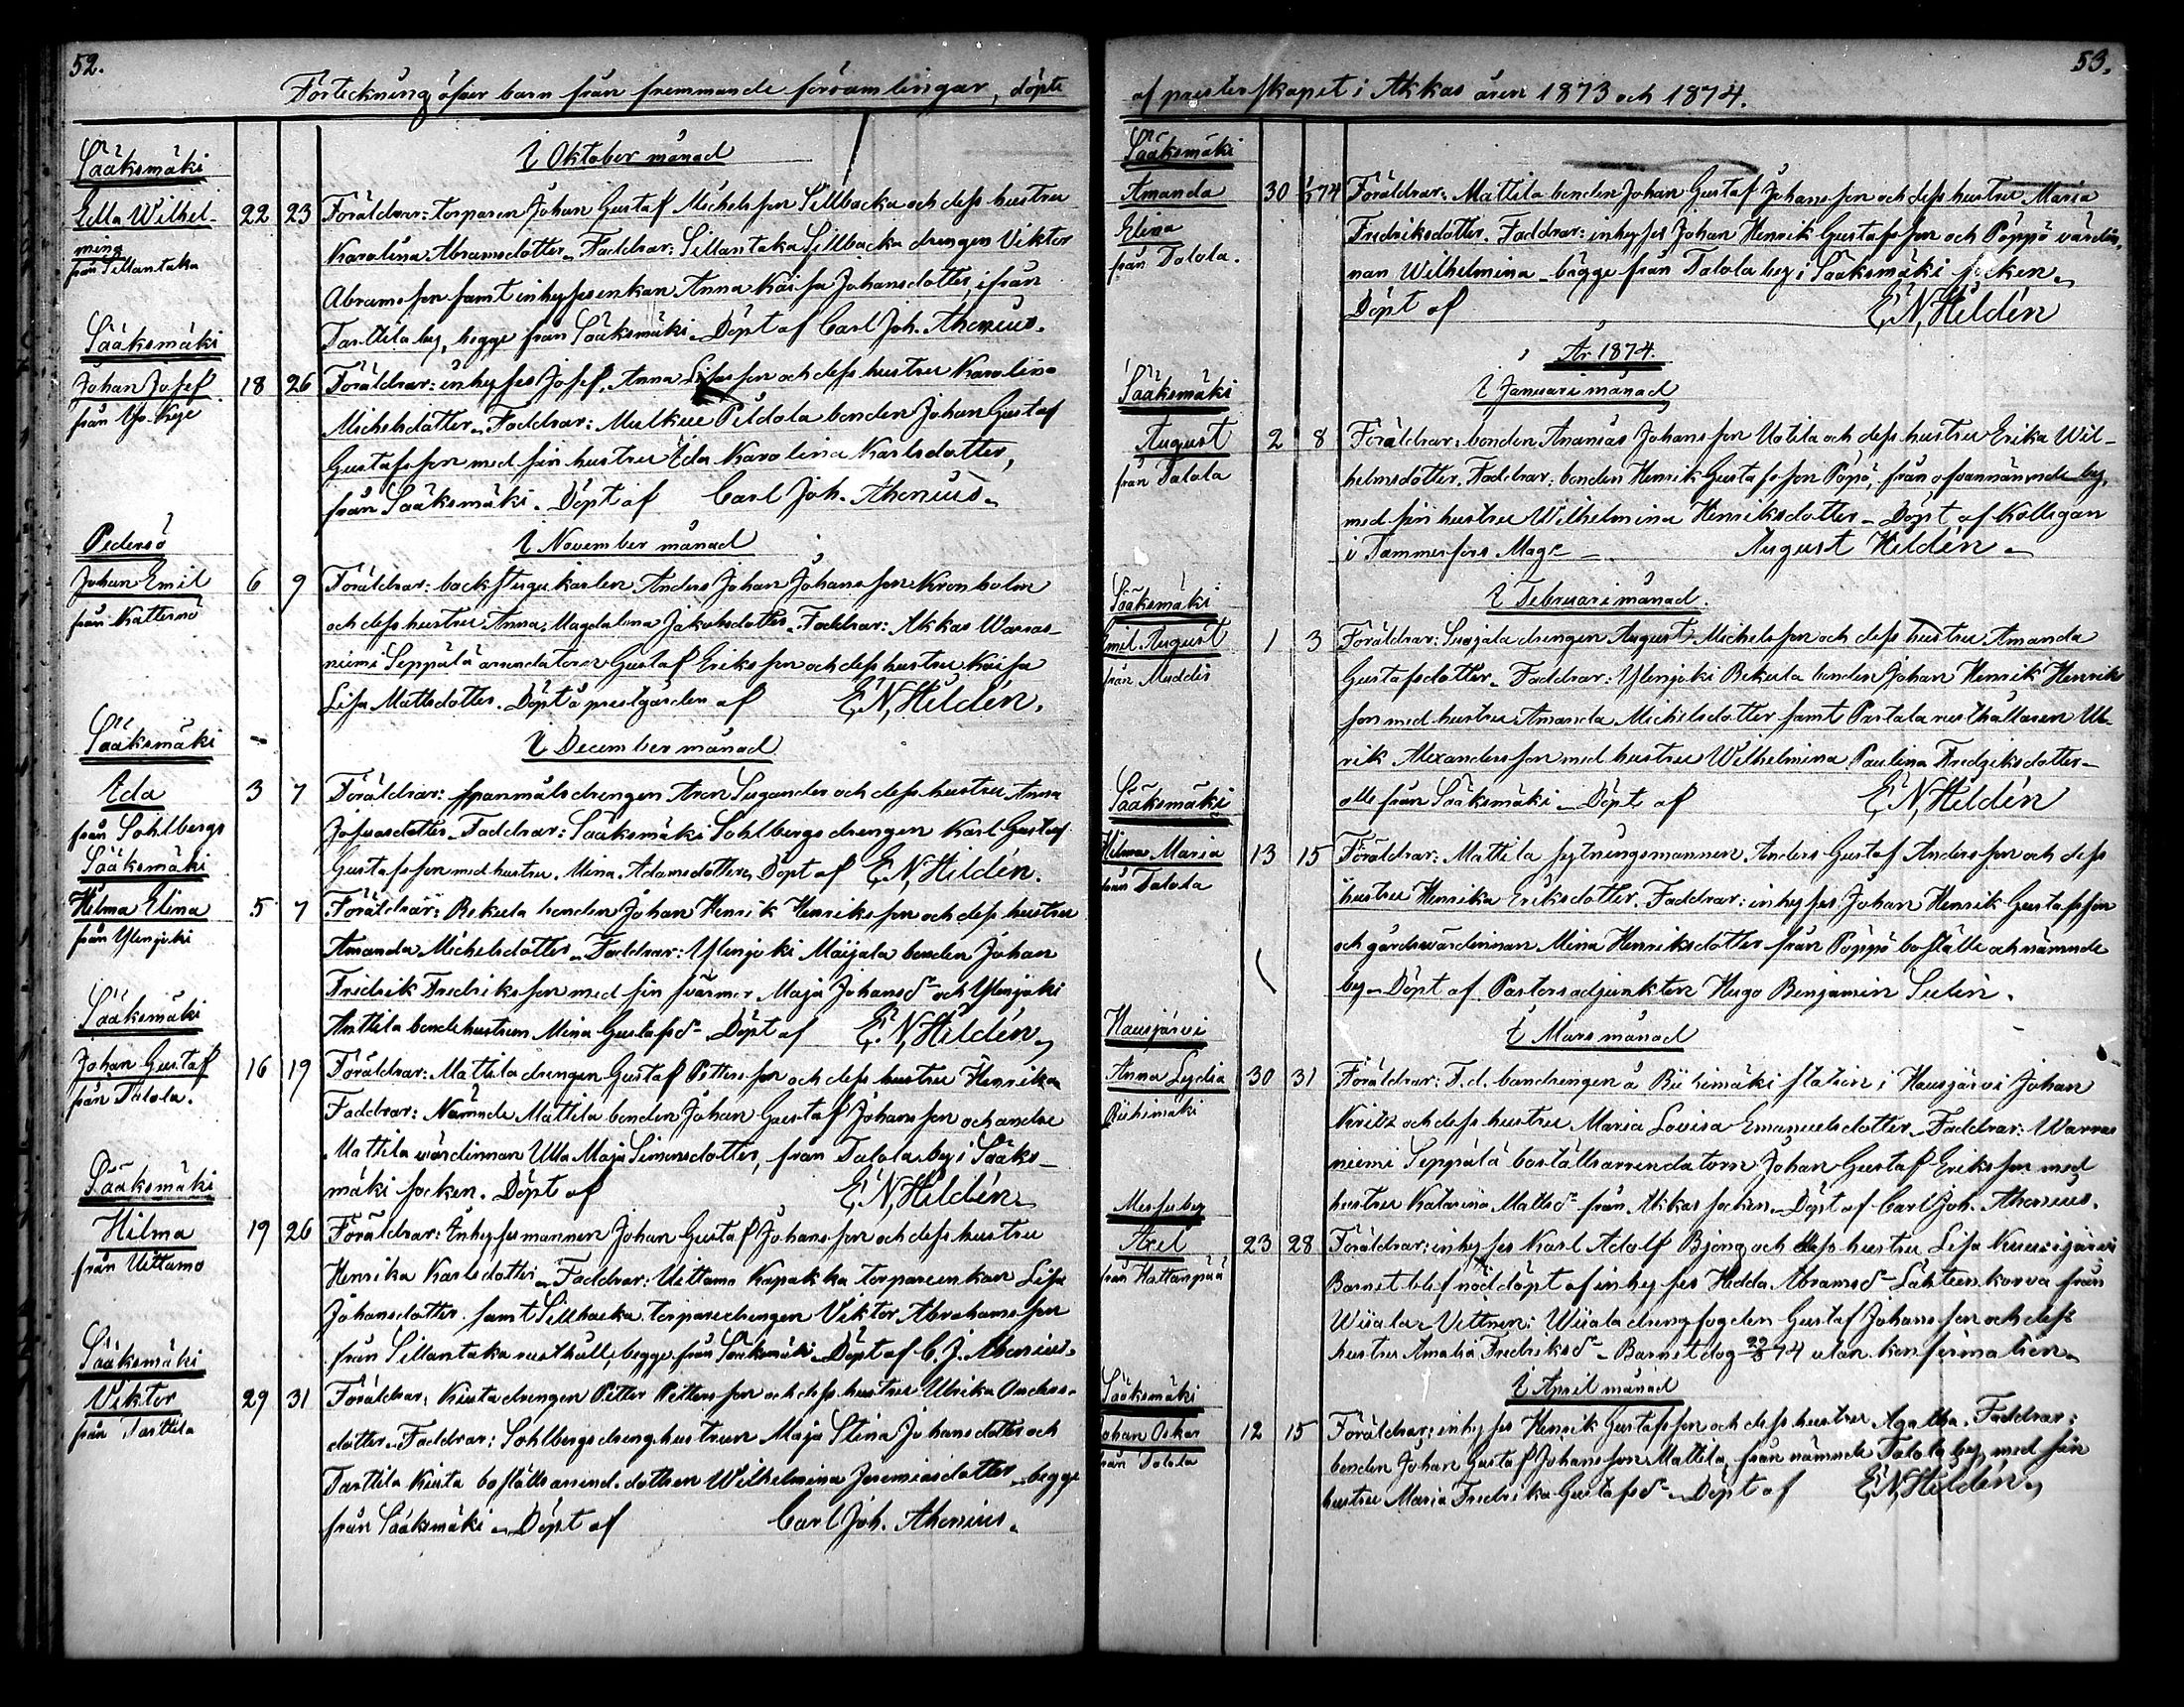 52.
Förteckning öfver barn från fremmande församlingar, döpte
I Oktober månad
Sääksmäki
Edla Wilhel-
mina
från Sillantaka
22 23 Föräldrar: torparen Johan Gustaf Michelsson Sillbacka och dess hustru
Karolina Abramsdotter. Faddrar: Sillantaka Sillbacka drengen Viktor
Abramsson samt inhysesenkan Anna Kaisa Johansdotter, ifrån
Tarttila by, begge från Sääksmäki. Döpt af Carl Joh. Athenius.
Sääksmäki
Johan Josef
från
18 26 Föräldrar: inhyses Josef, Anna Lisasson och dess hustru Karolina
Michelsdotter. Faddrar: Mulkue Pildola bonden Johan Gustaf
Gustafsson med sin hustru Eda Karolina Karlsdotter,
från Sääksmäki. Döpt af Carl Joh. Athenius.
I November månad
Pedersö
Johan Emil
från Katternö
6 9 Föräldrar: backstugukarlen Anders Johan Johansson Kronholm
och dess hustru Anna Magdalena Jakobsdotter. Faddrar: Akkas Warras-
niemi Seppälä arrendatorn Gustaf Eriksson och dess hustru Kaisa
Lisa Mattsdotter. Döpt å prestgården af E. N. Hildén.
I December månad
Sääksmäki
Eda
från Sohlbergs
3 7 Föräldrar: spanmålsdrengen Aron Sugander och dess hustru Anna
Josuasdotter. Faddrar: Sääksmäki Sohlbergs drengen Karl Gustaf
Gustafsson med hustru Mina Adamsdotter. Döpt af E. N. Hildén.
Sääksmäki
Hilma Elina
från Ylenjoki
5 7 Föräldrar: Bekula bonden Johan Henrik Henriksson och dess hustru
Amanda Michelsdotter. Faddrar: Ylenjoki Maijala bonden Johan
Fredrik Fredriksson med sin svärmor Maja Johansdr och Ylenjoki
Anttila bondehustrun Mina Gustafsdr Döpt af E. N. Hildén.
Sääksmäki
Johan Gustaf
från Talola.
16 19 Föräldrar: Mattila drengen Gustaf Pettersson och dess hustru Henrika
Faddrar: Nämnde Mattila bonden Johan Gustaf Johansson och andre
Mattila värdinnan Ulla Maja Simonsdotter, från Talola by i Sääks-
mäki socken. Döpt af E. N. Hildén.
Sääksmäki
Hilma
från Uittamo
19 26 Föräldrar: Inhysesmannen Johan Gustaf Johansson och dess hustru
Henrika Karlsdotter. Faddrar: Uittamo Kapakka torpareenkan Lisa
Johansdotter samt Sillbacka torparedrengen Viktor Abrahamsson
från Sillantaka rusthåll, begge från Sääksmäki. Döpt af C. J. Athenius.
Sääksmäki
Viktor
från Tarttila
29 31 Föräldrar: Kiusta drengen Petter Pettersson och dess hustru Ulrika Anders-
dotter. Faddrar: Sohlbergs drenghustrun Maja Stina Johansdotter och
Tarttila Kiusta boställsarrend. dottren Wilhelmina Jeremiasdotter begge
från Sääksmäki. Döpt af Carl Joh. Athenius.
53.
af presterskapet i Akkas åren 1873 och 1874.
Sääksmäki
Amanda
Elina
från Talola.
30 1/1 74 Föräldrar: Mattila bonden Johan Gustaf Johansson och dess hustru Maria
Fredriksdotter. Faddrar: inhyses Johan Henrik Gustafsson och Pöppö värdin-
nan Wilhelmina begge från Talola by i Sääksmäki socken.
Döpt af E. N. Hildén
År 1874.
I Januari månad
Sääksmäki
August
från Talola
2 8 Föräldrar: bonden Ananias Johansson Uotila och dess hustru Erika Wil-
helmsdotter. Faddrar: bonden Henrik Gustafsson Pöpö, från ofvannämnde by,
med sin hustru Wilhelmina Henriksdotter. Döpt af Kollegan
i Tammerfors Mag. August Hildén.
I Februari månad
Sääksmäki
Emil August
från Muddis
1 3 Föräldrar: drengen August Michelsson och dess hustru Amanda
Gustafsdotter. Faddrar: Ylenjoki Bekula bonden Johan Henrik Henriks
son med hustru Amanda Michelsdotter samt Partala rusthållaren Ul-
rik Alexandersson med hustru Wilhelmina Paulina Fredriksdotter
alle från Sääksmäki. Döpt af E. N. Hildén
Sääksmäki
Hilma Maria
från Talola
13 15 Föräldrar: Mattila sytningsmannen Anders Gustaf Andersson och dess
hustru Henrika Eriksdotter. Faddrar: inhyses Johan Henrik Gustafsson
och gårdsvärdinnan Mina Henriksdotter från Pöppö boställe och nämnde
by. Döpt af Pastorsadjunkten Hugo Benjamin Sulin.
I Mars månad
Hausjärvi
Anna Lydia
Riihimäki
30 31 Föräldrar: T. d. bandrengen å Riihimäki station i Hausjärvi Johan
och dess hustru Maria Lovisa Emanuelsdotter. Faddrar: Warras
niemi Seppälä boställsarrendatorn Johan Gustaf Eriksson med
hustru Katarina Mattsdr från Akkas socken. Döpt af Carl Joh. Athenius.
Messuby
Axel
från Hattanpää
23 28 Föräldrar: inhyses Karl Adolf Bjong och dess hustru Lisa Kuusijärvi
Barnet blef nöddöpt af inhyses Hedda Abramsdr Lähteenkorva från
Wiiala. Vittnen: Wiiala drengfogden Gustaf Johansson och dess
hustru Amalia Fredriksdr. Barnet dog 74 utan konfirmation.
I April månad
Sääksmäki
Johan Oskar
från Talola
12 15 Föräldrar: inhyses Henrik Gustafsson och dess hustru Agatha. Faddrar:
bonden Johan Gustaf Johansson Mattila, från nämnde Talola by, med sin
hustru Maria Fredrika Gustafsdr. Döpt af E. N. Hildén.